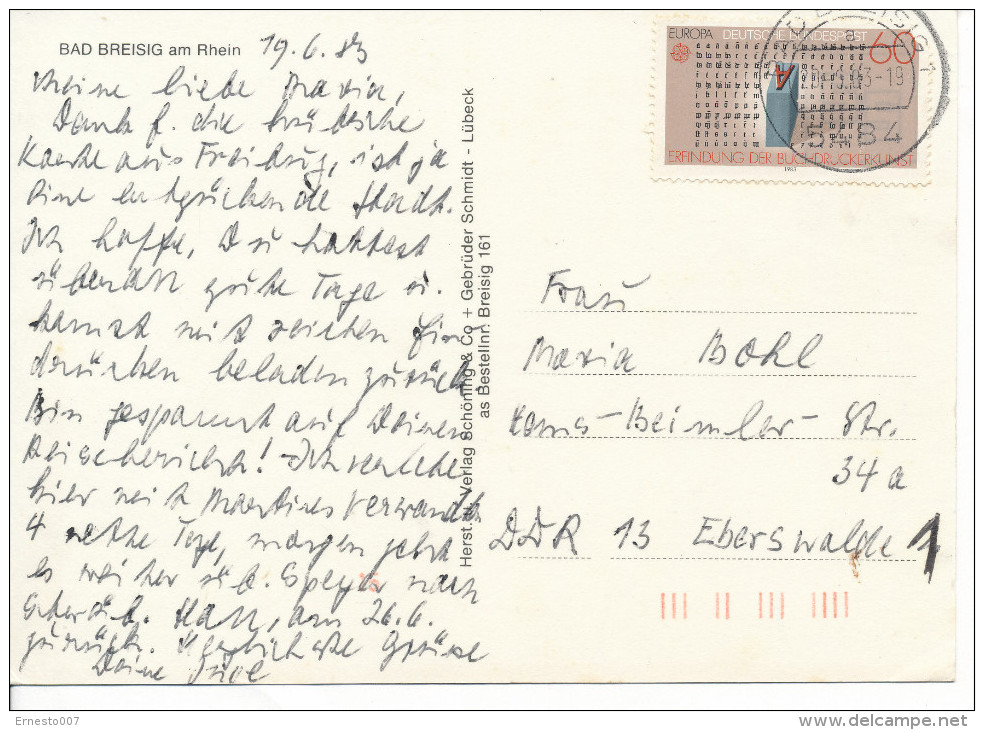 BAD BREISIG am Rhein 19.6.83
Meine liebe Maria,
Dank f. die hübsche
Karte aus Freiburg, ist ja
eine entzückende Stadt.
Ich hoffe, Du hattest
überall gute Tage u.
kamst mit reichen Ein
drücken beladen zurück.
Bin gespannt auf Deinen
Reisebericht! Ich verlebe
hier mit Martines Verwandten
4 nette Tage, morgen geht
es weiter üb. Speyer nach
Hall, am 26.6.
zurück. Herzlichste Grüße
Deine
Herst. u. Verlag Schöning & Co + Gebrüder Schmidt - Lübeck
as Bestellnr. Breisig 161
EUROPA DEUTSCHE BUNDESPOST 60
ERFINDUNG DER BUCHDRUCKERKUNST
1983
BREISIG 1
-19
5484
Frau
Maria Bohl
Hans-Beimler-Str.
34a
DDR 13 Eberswalde 1
Ernesto007
www.delcampe.net